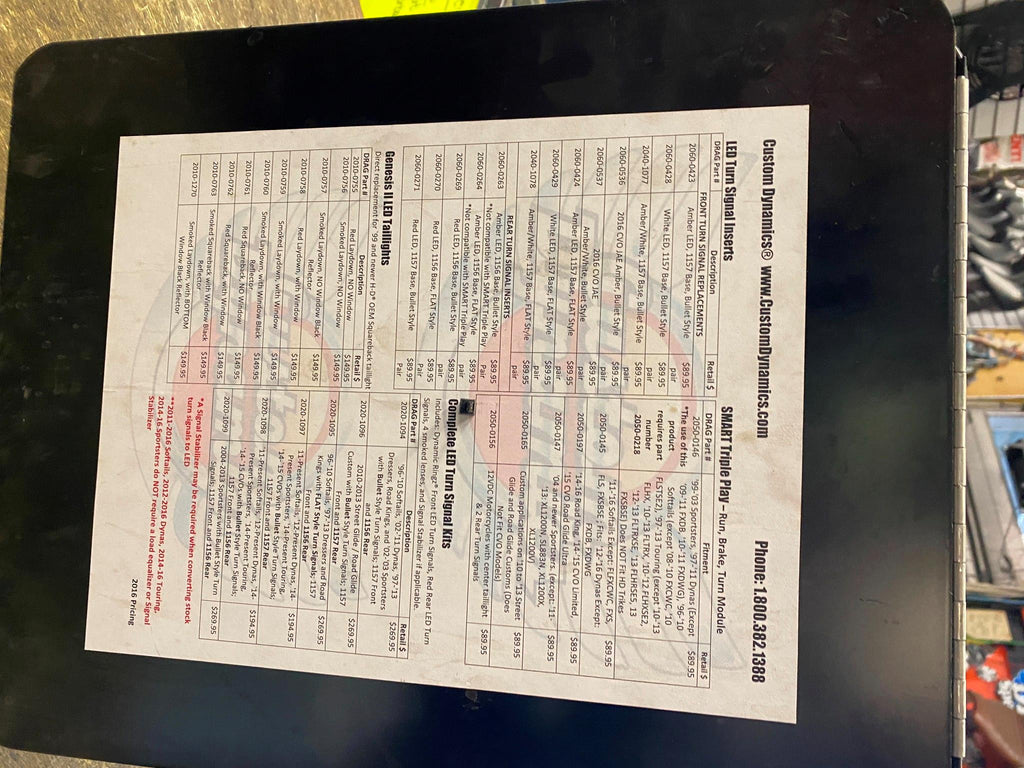 Custom Dynamics® www.CustomDynamics.com Phone: 1.800.382.1388
LED Turn Signal Inserts
DRAG Part # Description Retail $
FRONT TURN SIGNAL REPLACEMENTS
2060-0423 Amber LED, 1157 Base, Bullet Style $89.95 pair
2060-0428 White LED, 1157 Base, Bullet Style $89.95 pair
2040-1077 Amber/White, 1157 Base, Bullet Style $89.95 pair
2060-0536 2016 CVO JAE Amber, Bullet Style $89.95 pair
2060-0537 2016 CVO JAE
Amber/White, Bullet Style $89.95 pair
2060-0424 Amber LED, 1157 Base, FLAT Style $89.95 pair
2060-0429 White LED, 1157 Base, FLAT Style $89.95 pair
2040-1078 Amber/White, 1157 Base, FLAT Style $89.95 pair
REAR TURN SIGNAL INSERTS
2060-0263 Amber LED, 1156 Base, Bullet Style
*Not compatible with SMART Triple Play $89.95 Pair
2060-0264 Amber LED, 1156 Base, FLAT Style
*Not compatible with SMART Triple Play $89.95 pair
2060-0269 Red LED, 1156 Base, Bullet Style $89.95 pair
2060-0270 Red LED, 1156 Base, FLAT Style $89.95 pair
2060-0271 Red LED, 1157 Base, Bullet Style $89.95 Pair
Genesis II LED Taillights
Direct replacement for '99 and newer H-D® OEM Squareback taillight
DRAG Part # Description Retail $
2010-0755 Red Laydown, NO Window $149.95
2010-0756 Smoked Laydown, NO Window $149.95
2010-0757 Smoked Laydown, NO Window Black
Reflector $149.95
2010-0758 Red Laydown, with Window $149.95
2010-0759 Smoked Laydown, with Window $149.95
2010-0760 Smoked Laydown, with Window Black
Reflector $149.95
2010-0761 Red Squareback, NO Window $149.95
2010-0762 Red Squareback with Window $149.95
2010-0763 Smoked Squareback with Window Black
Reflector $149.95
2010-1270 Smoked Laydown, with BOTTOM
Window Black Reflector $149.95
SMART Triple Play – Run, Brake, Turn Module
DRAG Part # Fitment Retail $
2050-0146
*The use of this
product
requires part
number
2050-0218
'99-'03 Sportsters, '97-'11 Dynas (Except
'09-'11 FXDB, '10-'11 FXDWG), '96-'10
Softails (except '08-'10 FXCWC, '10
'97-'13 Touring (except '10-'13
FLHX, '10-'13 FLTRX, '10-'12 FLHXSE2,
'12-'13 FLTRXSE, '13 FLHRSE5, 13
FXSBSE) Does NOT Fit HD Trikes $89.95
2050-0145 '11-'16 Softails Except: FLFXCWC, FXS,
FLS, FXSBSE ; Fits: '12-'16 Dynas Except:
FXDB, FXDWG $89.95
2050-0197 '14-16 Road King, '14-'15 CVO Limited,
'15 CVO Road Glide Ultra $89.95
2050-0147 '04 and newer Sportsters, (except: '11-
'13: XL1200N, XL883N, XL1200X,
XL1200V) $89.95
2050-0165 Custom applications on '10 to '13 Street
Glide and Road Glide Custom, (Does
Not Fit CVO Models) $89.95
2050-0156 12VDC Motorcycles with center taillight
& 2 Rear Turn Signals $89.95
Complete LED Turn Signal Kits
Includes: Dynamic Ringz® Front LED Turn Signals, Red Rear LED Turn
Signals, 4 smoked lenses, and Signal Stabilizer if applicable.
DRAG Part # Description Retail $
2020-1094 '96-'10 Softails, '02-'11 Dynas, '97-'13
Dressers, Road Kings, and '02-'03 Sportsters
with Bullet Style Turn Signals; 1157 Front
and 1156 Rear $269.95
2020-1096 2010-2013 Street Glide / Road Glide
Custom with Bullet Style Turn Signals; 1157
Front and 1157 Rear $269.95
2020-1095 '96-'10 Softails, '97-'13 Dressers and Road
Kings with FLAT Style Turn Signals; 1157
Front and 1156 Rear $269.95
2020-1097 11-Present Softails, '12-Present Dynas, '14-
Present Sportsters, '14-Present Touring,
'14-'15 CVOs with Bullet Style Turn Signals;
1157 Front and 1157 Rear $194.95
2020-1098 '11-Present Softails, '12-Present Dynas, '14-
Present Sportsters, '14-Present Touring,
'14-'15 CVOs with Bullet Style Turn Signals;
1157 Front and 1156 Rear $194.95
2020-1099 2004-2013 Sportsters with Bullet Style Turn
Signals; 1157 Front and 1156 Rear $269.95
*A Signal Stabilizer may be required when converting stock
turn signals to LED
**2011-2016 Softails, 2012-2016 Dynas, 2014-16 Touring,
2014-16 Sportsters do NOT require a load equalizer or Signal
Stabilizer
2016 Pricing